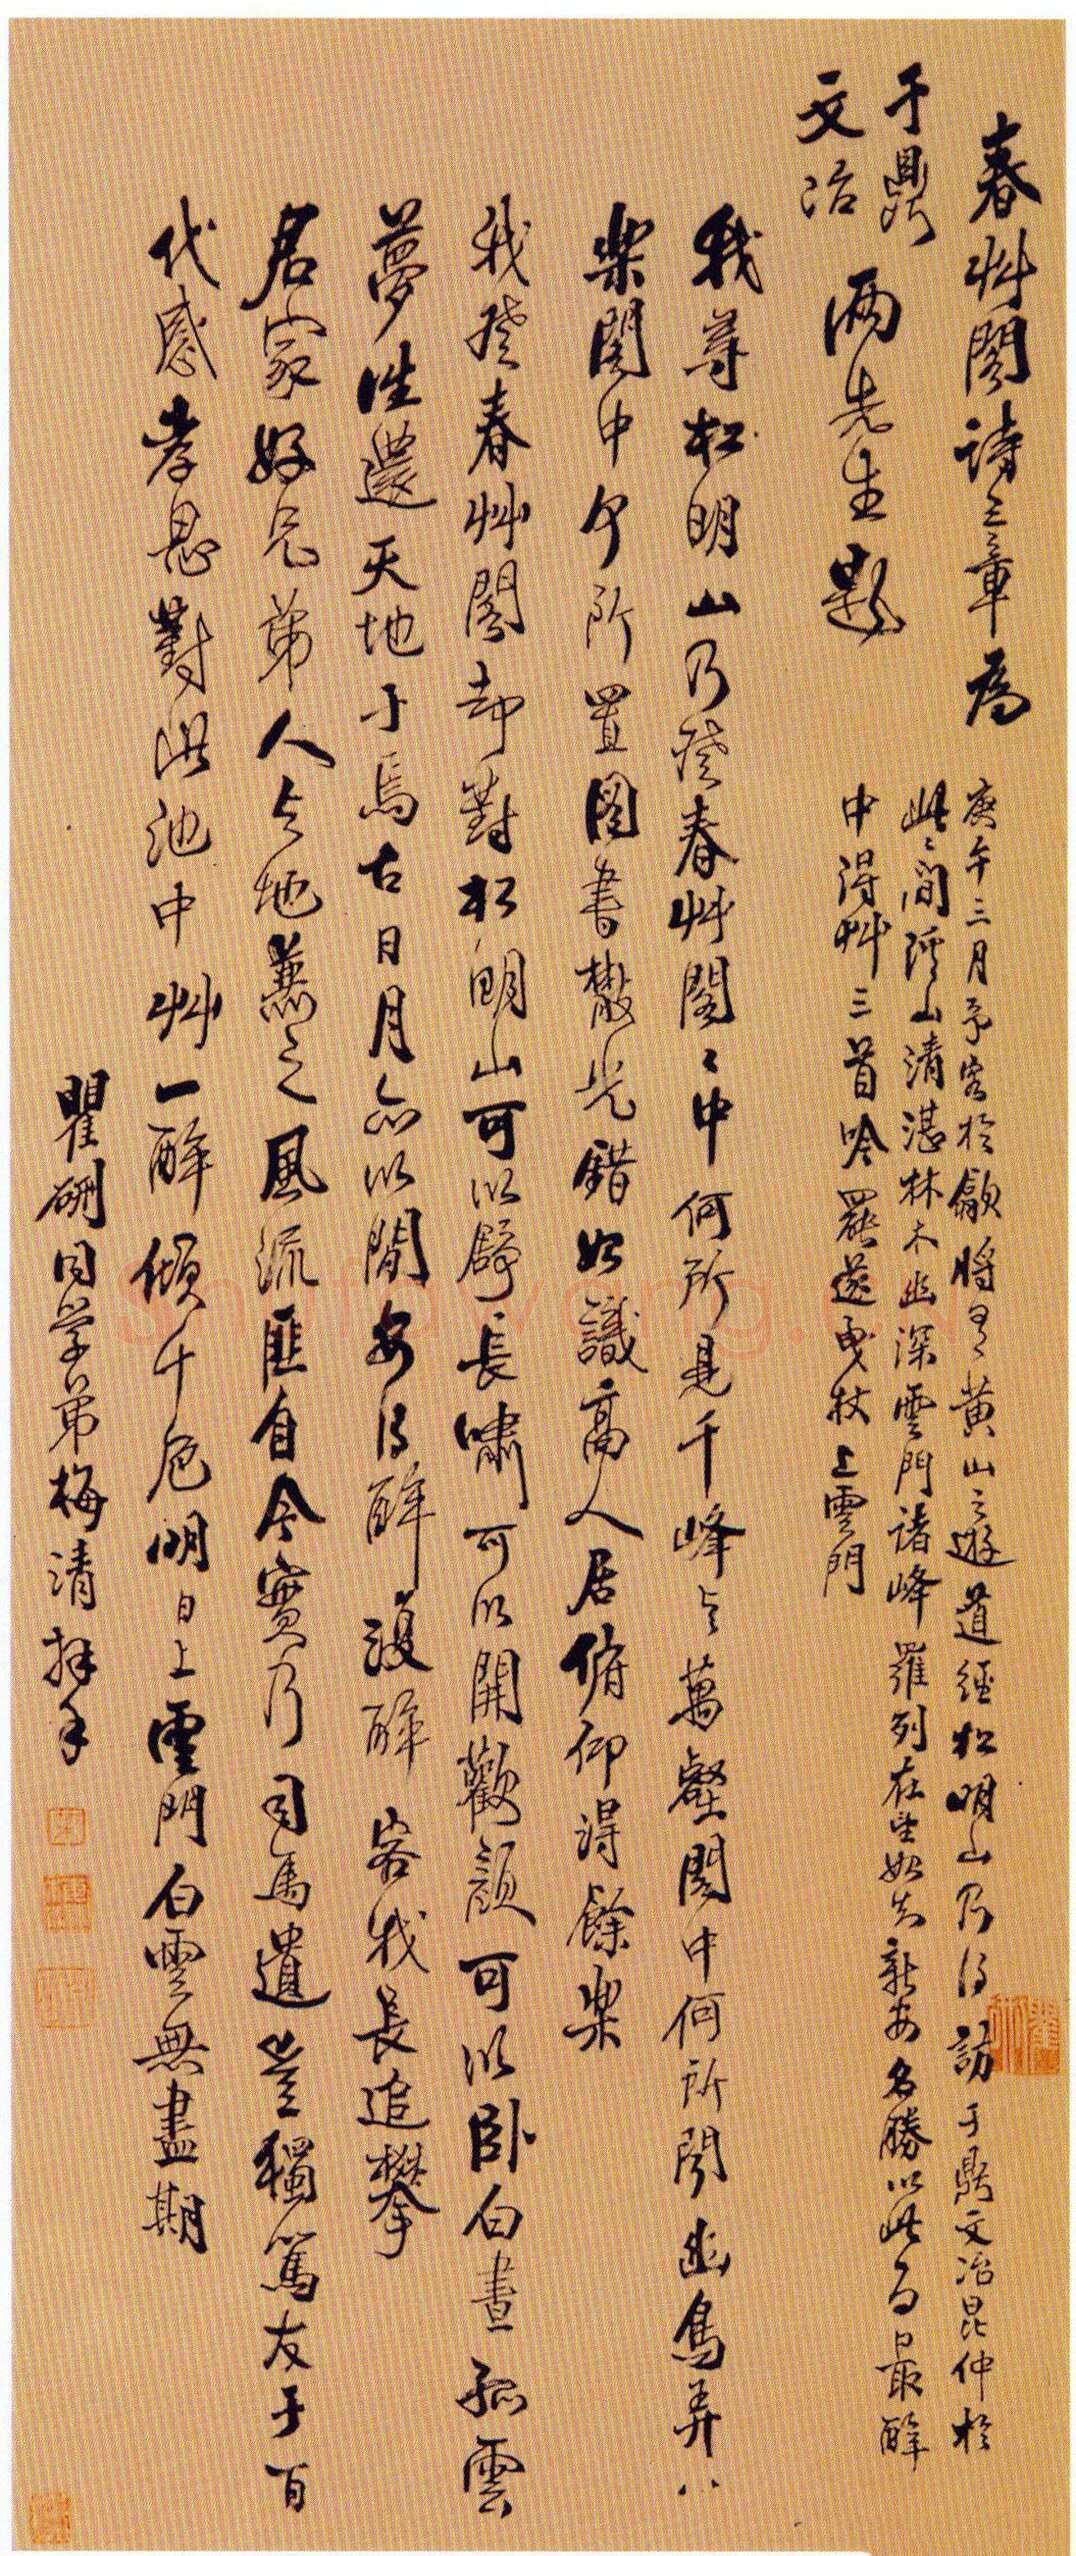 春艸閣詩三章爲
于鼎
文治
兩先生題
庚午三月予客於歙將有黄山之遊道經松明山乃得訪于鼎文治昆仲於
此此間溪山清湛林木幽深雲門諸峰羅列在望如知新安名勝以此為最醉
中得艸三首吟罷遂曳杖上雲門
我尋松明山乃登春艸閣〻中何所見千峰与萬壑閣中何所聞幽鳥弄八
樂閣中何所置圖書散光錯如識高人居俯仰得餘樂
我登春艸閣却對松明山可以舒長嘯可以開歡顔可以卧白晝孤雲
夢往還天地于焉古日月亦以閒安得醉復醉客我長追攀
君家好兄弟人与地兼之風流匪自今實乃司馬遺豈獨篤友于百
代感孝思對此池中艸一醉傾千卮明日上雲門白雲無盡期
瞿硎同学弟梅清拜手